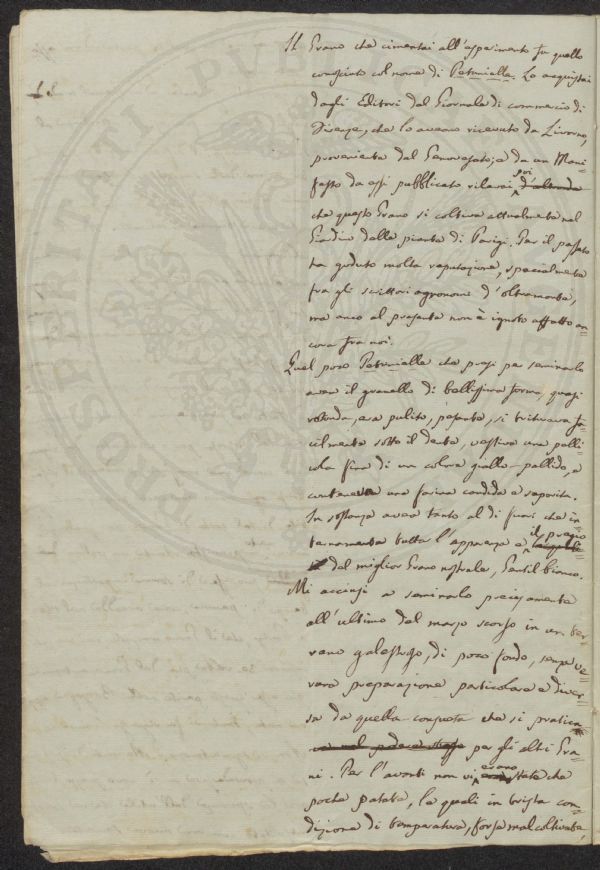 Il Grano che cimentai all'esperimento fu quello
conosciuto col nome di Petanielle. Lo acquistai
dagli Editori del Giornale di commercio di
Firenze, che lo avevano ricevuto da Livorno,
proveniente dal Genovesato; e da un Mani-
festo da essi pubblicato rilevai poi d'altronde
che questo Grano si coltiva attualmente nel
Giardino delle piante di Parigi. Per il passato
ha goduto molta reputazione, specialmente
fra gli scrittori agronomi d'oltremonti,
ma anco al presente non è ignoto affatto an=
cora fra noi.
Quel poco Petanielle che presi per seminarlo
aveva il granello di bellissima forma, quasi
rotonda, era pulito, pesante, si triturava fa=
cilmente sotto il dente, vestiva una pelli=
cola fine di un colore giallo-pallido, e
conteneva una farina candida e saporita.
In sostanza aveva tanto al di fuori che in=
ternamente tutta l'apparenza e il pregio
del miglior Grano nostrale, Gentil bianco.
Mi accinsi a seminarlo precisamente
all'ultimo del marzo scorso in un ter=
reno galestroso, di poco fondo, senza ve=
runa preparazione particolare e diver=
sa da quella consueta che si pratica
va nel podere stesso per gli altri Gra=
ni. Per l'avanti non vi erano state che
poche patate, le quali in trista con=
dizione di temperatura, forse mal coltivate,
PROSPERITATI PUBLICAE